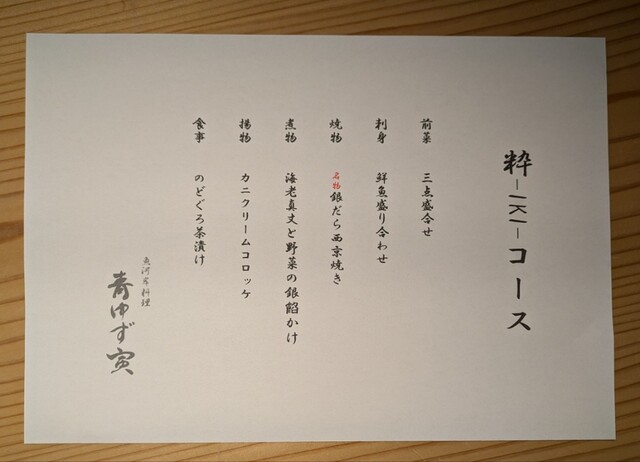 粋－IKI－コース
前菜　三点盛合せ
刺身　鮮魚盛り合わせ
焼物　名物銀だら西京焼き
煮物　海老真丈と野菜の銀餡かけ
揚物　カニクリームコロッケ
食事　のどぐろ茶漬け
魚河岸料理
青ゆず寅